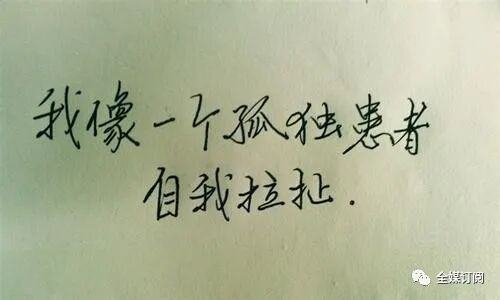 我像一个孤独患者
自我拉扯.
全媒订阅